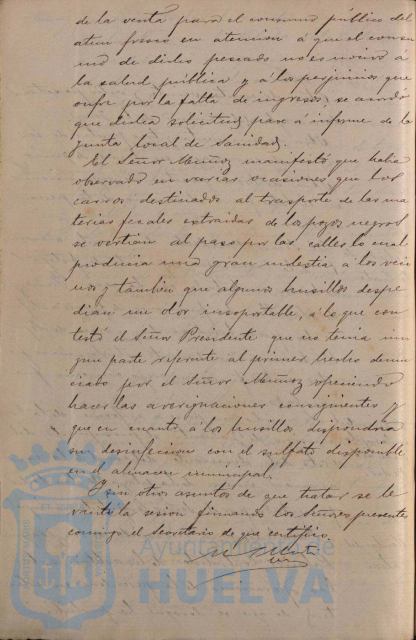 de la venta para el consumo público del
atun fresco en atencion á que el consu
mo de dicho pescado no es nocivo á
la salud pública y á los perjuicios que
sufre por la falta de ingresos, se acordó
que dicha solicitud pase á informe de la
Junta local de Sanidad.
El Señor Muñoz manifestó que habia
observado en varias ocasiones que los
carros destinados al trasporte de las ma
terias fecales extraidas de los pozos negros
se vertian al paso por las calles lo cual
producia una gran molestia á los veci
nos y tambien que algunos husillos despe
dian un olor insoportable, á lo que con
testó el Señor Presidente que no tenia nin
gun parte referente al primer hecho denun
ciado por el Señor Muñoz ofreciendo
hacer las averiguaciones consiguientes y
que en cuanto á los husillos dispondria
su desinfeccion con el sulfato disponible
en el almacen municipal.
Y sin otros asuntos de que tratar se le
vantó la sesion firmando los Señores presentes
conmigo el Secretario de que certifico.
Ayuntamiento de
HUELVA